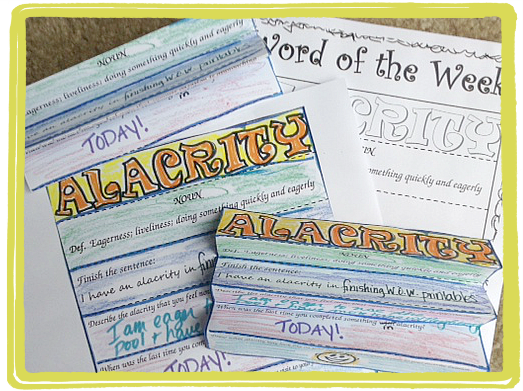 NOUN
Eagerness; liveliness; doing something quickly and eagerly
an alacrity in finishing W.O.W. printables
in
TODAY!
Word of the Week
ALACRITY
something quickly and eagerly
ALACRITY
NOUN
Def. Eagerness; liveliness; doing something quickly and eagerly
Finish the sentence:
I have an alacrity in finishing
Describe the alacrity that you feel
I am eager
pool + have
When was the last time you
TODAY!
ALACRITY
NOUN
Def. Eagerness; liveliness; doing something quickly and eagerly
Finish the sentence:
I have an alacrity in finishing W.O.W. printables
I am eager
When was the last time you completed something alacrity?
TODAY!